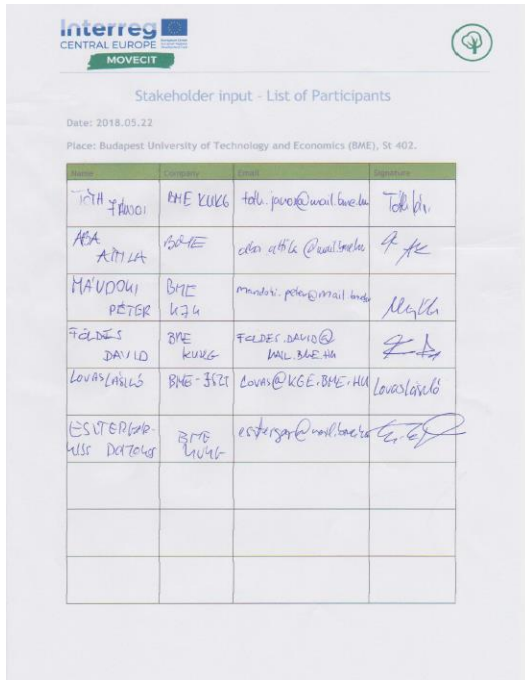 Interreg
CENTRAL EUROPE
MOVECIT
Stakeholder input - List of Participants
Date: 2018.05.22
Place: Budapest University of Technology and Economics (BME), St 402.
Name Company Email Signature
TÓTH JÁNOS BME KUKG toth.janos@mail.bme.hu Tóth
ABA ATTILA BME aba.attila@mail.bme.hu
MÁNDOKI PÉTER BME mandoki.peter@mail.bme.hu
FÖLDES DÁVID BME KUKG FOLDES.DAVID@MAIL.BME.HU
LOVAS LÁSZLÓ BME-JSZT LOVAS@KGE.BME.HU Lovas László
ESZTERGÁR-KISS DOMOKOS BME KUKG esztergar@mail.bme.hu